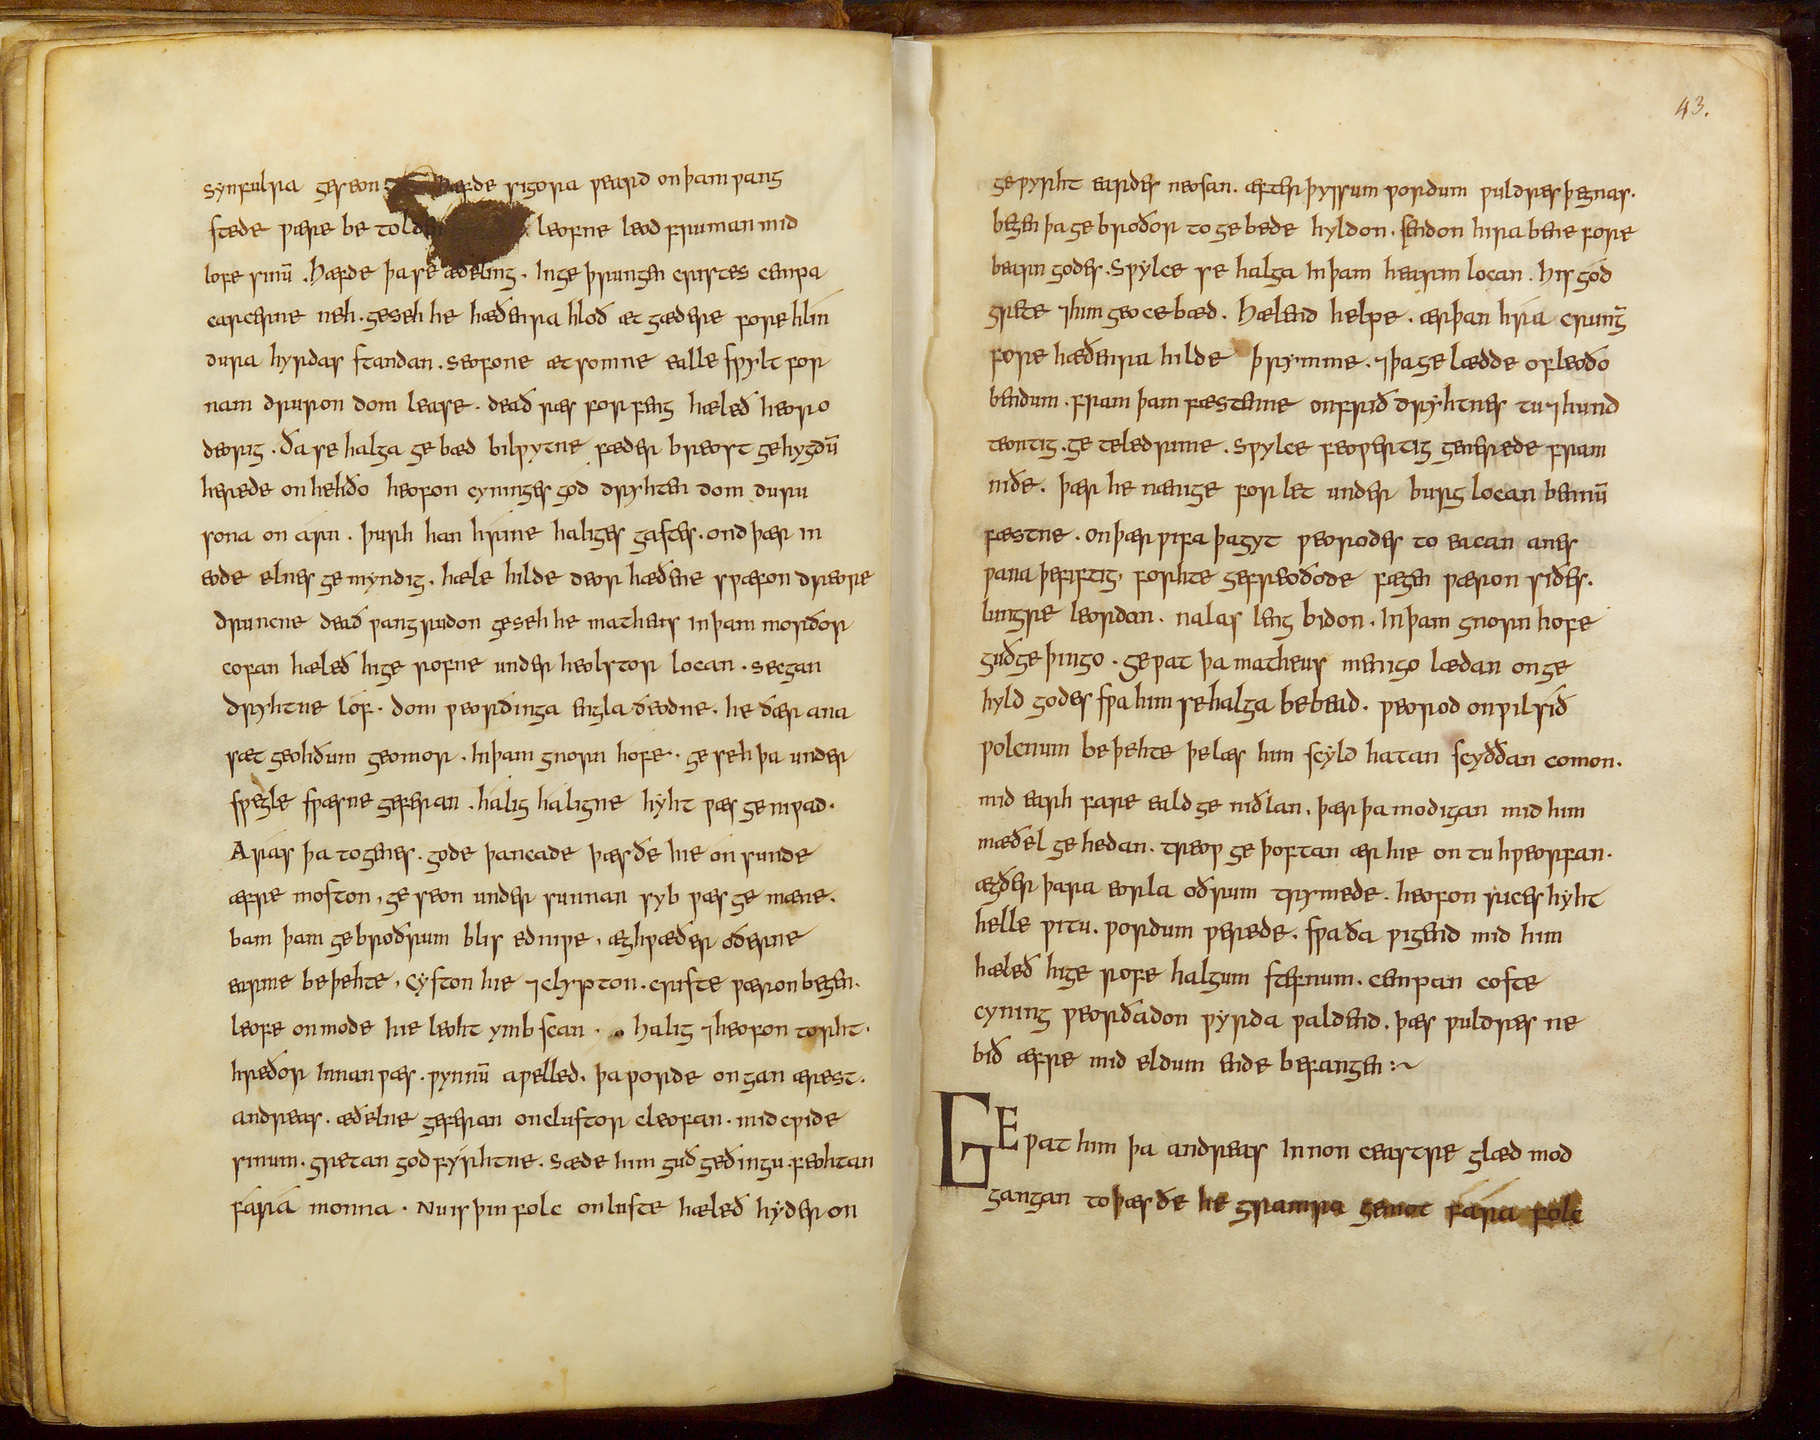 synfulra geseon hæfde sigora weard on þam wang
stede wære be tolden leofne leod fruman mid
lofe sinū . Hæfde þa se æðeling . In ge þrungen cristes cempa
carcerne neh . geseh he hæðenra hloð æt gædere fore hlin
dura hyrdas standan . seofone æt somne ealle swylt for
nam druron dom lease . deað ræs forfeng hæleð heoro
dreorig . Ða se halga ge bæd bilwytne fæder breost gehygdū
herede on hehðo heofon cyninges god dryhten dom duru
sona on arn . þurh han hrine haliges gastes . ond þær in
eode elnes ge myndig . hæle hilde deor hæðene swæfon dreore
druncne deað wang rudon geseh he matheus in þam morðor
cofan hæleð hige rofne under heolstor locan . secgan
dryhtne lóf . dom weorðinga engla ðeodne . he ðær ana
sæt geohðum geomor . In þam gnorn hofe . ge seh þa under
swegle swæsne geferan . halig haligne hyht wæs ge niwad .
Aras þa togenes . gode þancade þæs ðe hie on sunde
æfre moston , ge seon under sunnan syb wæs ge mæne .
bam þam ge broðrum blis edniwe , æghwæðer oðerne
earme beþehte , cyston hie ⁊ clypton . criste wæron begen .
leofe on mode hie leoht ymb scan . halig ⁊ heofon torht .
hreðor Innan wæs . wynnū awelled . þa worde ongan ærest .
andreas . æðelne geferan on clustor cleofan . mid cwide
sinum . gretan god fyrhtne . sæde him guð geðingu . feohtan
fara monna . Nu is þin folc on luste hæleð hyder on
43.
gewyrht eardes neosan . æfter þyssum wordum wuldres þegnas .
begen þa ge broðor to ge bede hyldon . sendon hira bene fore
bearn godes . Swylce se halga In þam hearm locan . His gód
grette ⁊ him geoce bæd . Hælend helpe . ær þan hra crung̃
fore hæðenra hilde þrymme . ⁊ þa ge lædde of leoðo
bendum . fram þam fæstenne on frið dryhtnes tu ⁊ hund
teontig . ge teled rime . swylce feowertig generede fram
niðe . þær he nænige forlet under burg locan bennū
fæstne . on þær wifa þa gyt weorodes to eacan anes
wana þe fiftig . forhte gefreoðode fægen wæron siðes .
lungre leordan . nalas leng bidon . In þam gnorn hofe
guðge þingo . Gewat þa matheus menigo lædan on ge
hyld godes swa him se halga bebead . weorod on wil sið
wolcnum be þehte þe læs him scyld hatan scyððan comon .
mid earh fare eald ge niðlan . þær þa modigan mid him
mæðel ge hedan . treow ge þoftan ær hie on tu hweorfan .
ægðer þara eorla oðrum trymede . heofon rices hyht
helle witu . wordum werede . swa ða wigend mid him
hæleð hige rofe halgum stefnum . cempan coste
cyning weorðadon wyrda waldend . þæs wuldres ne
bið æfre mid eldum ende befangen :~
GE wat him þa andreas Innon ceastre glæd mod
gangan to þæs ðe he gramra gemot fara folc